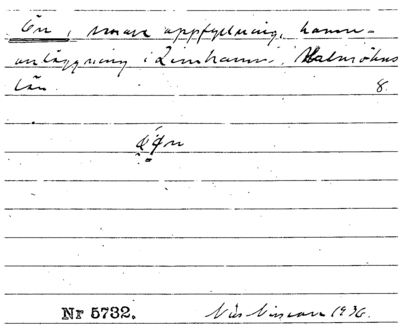 Ön, smarr uppfyllning, hamn-
anläggning i Limhamn. Malmöhus
län. 8.
Ön
Nr 5732. Nils Nilsson 1936.